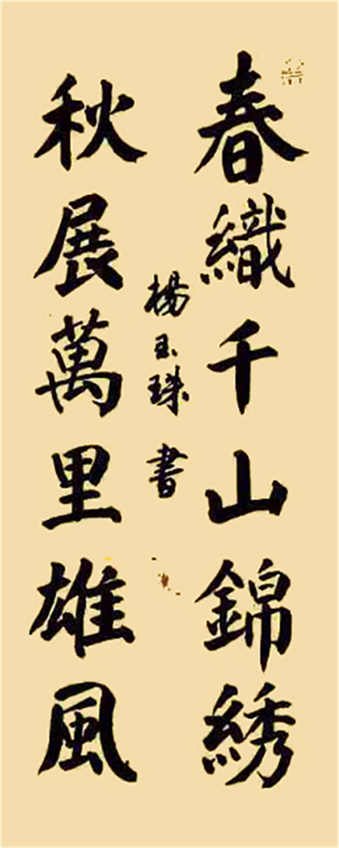 春織千山錦綉
秋展萬里雄風
楊玉珠書